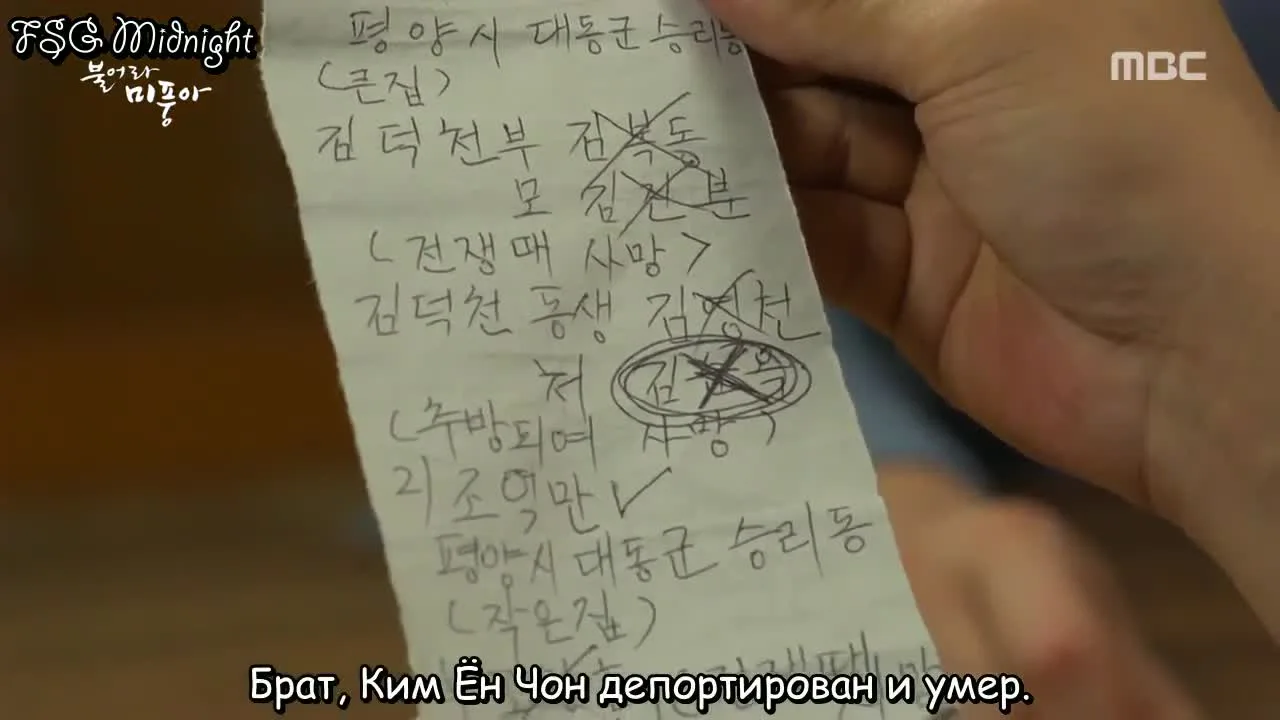 FSG Midnight
불어라
미풍아
MBC
평양시 대동군 승리동
(큰집)
김덕천부 김복동
모 김간분
(전쟁때 사망)
김덕천 동생 김영천
처 김
(추방되여 사망)
리조억만 ✓
평양시 대동군 승리동
(작은집)
Брат, Ким Ён Чон депортирован и умер.